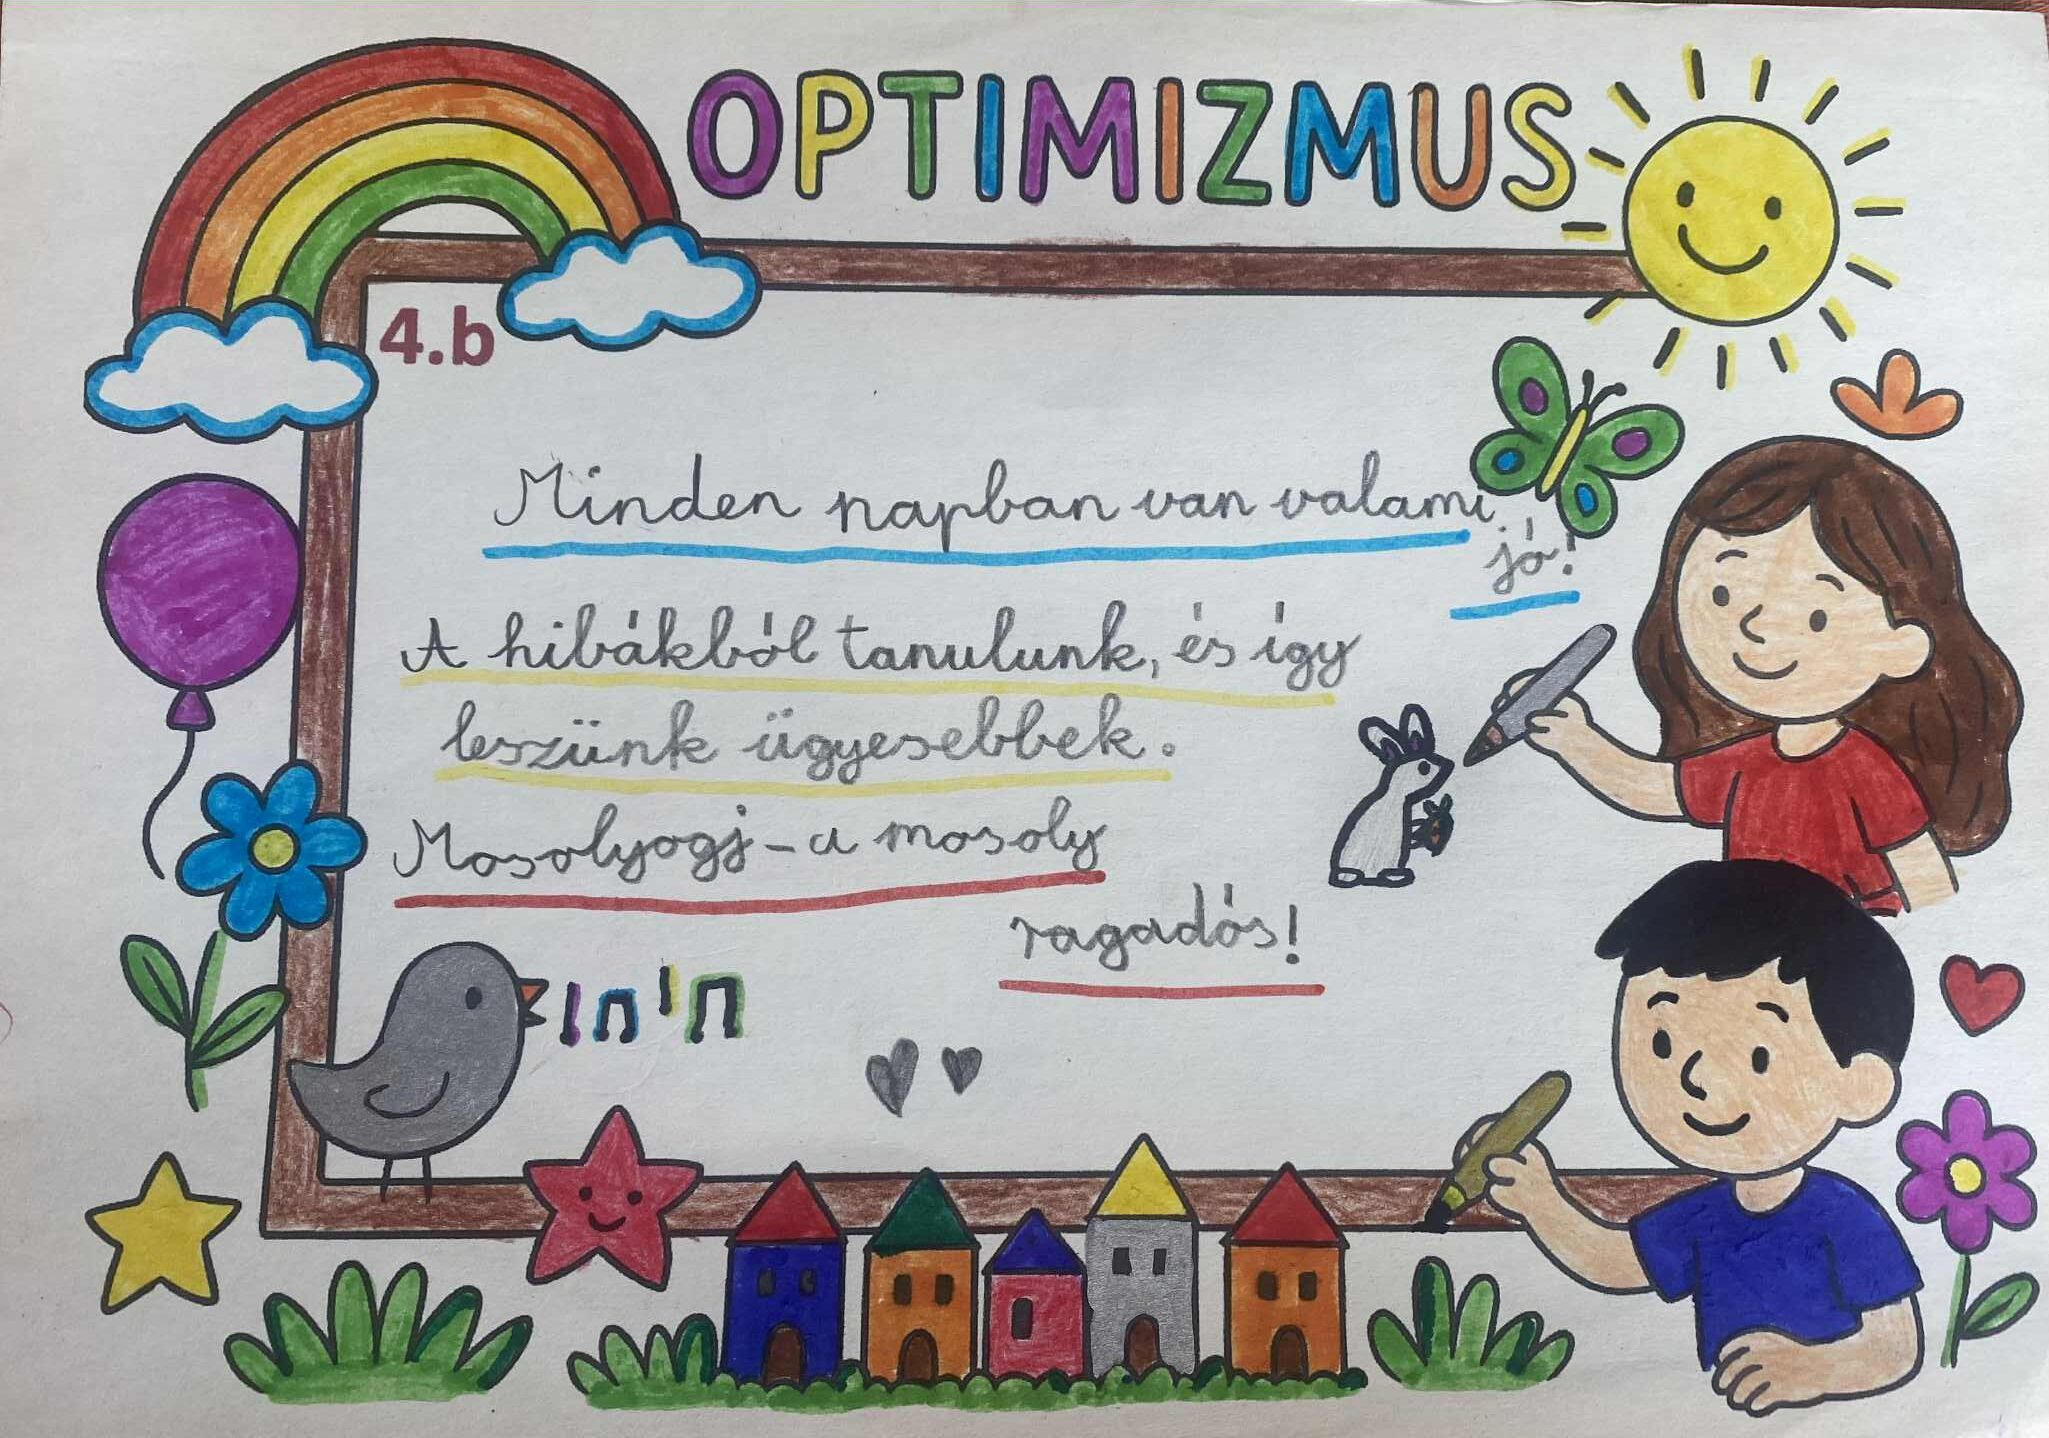 OPTIMIZMUS
4.b
Minden napban van valami
jó!
A hibákból tanulunk, és így
leszünk ügyesebbek.
Mosolyogj - a mosoly
ragadós!